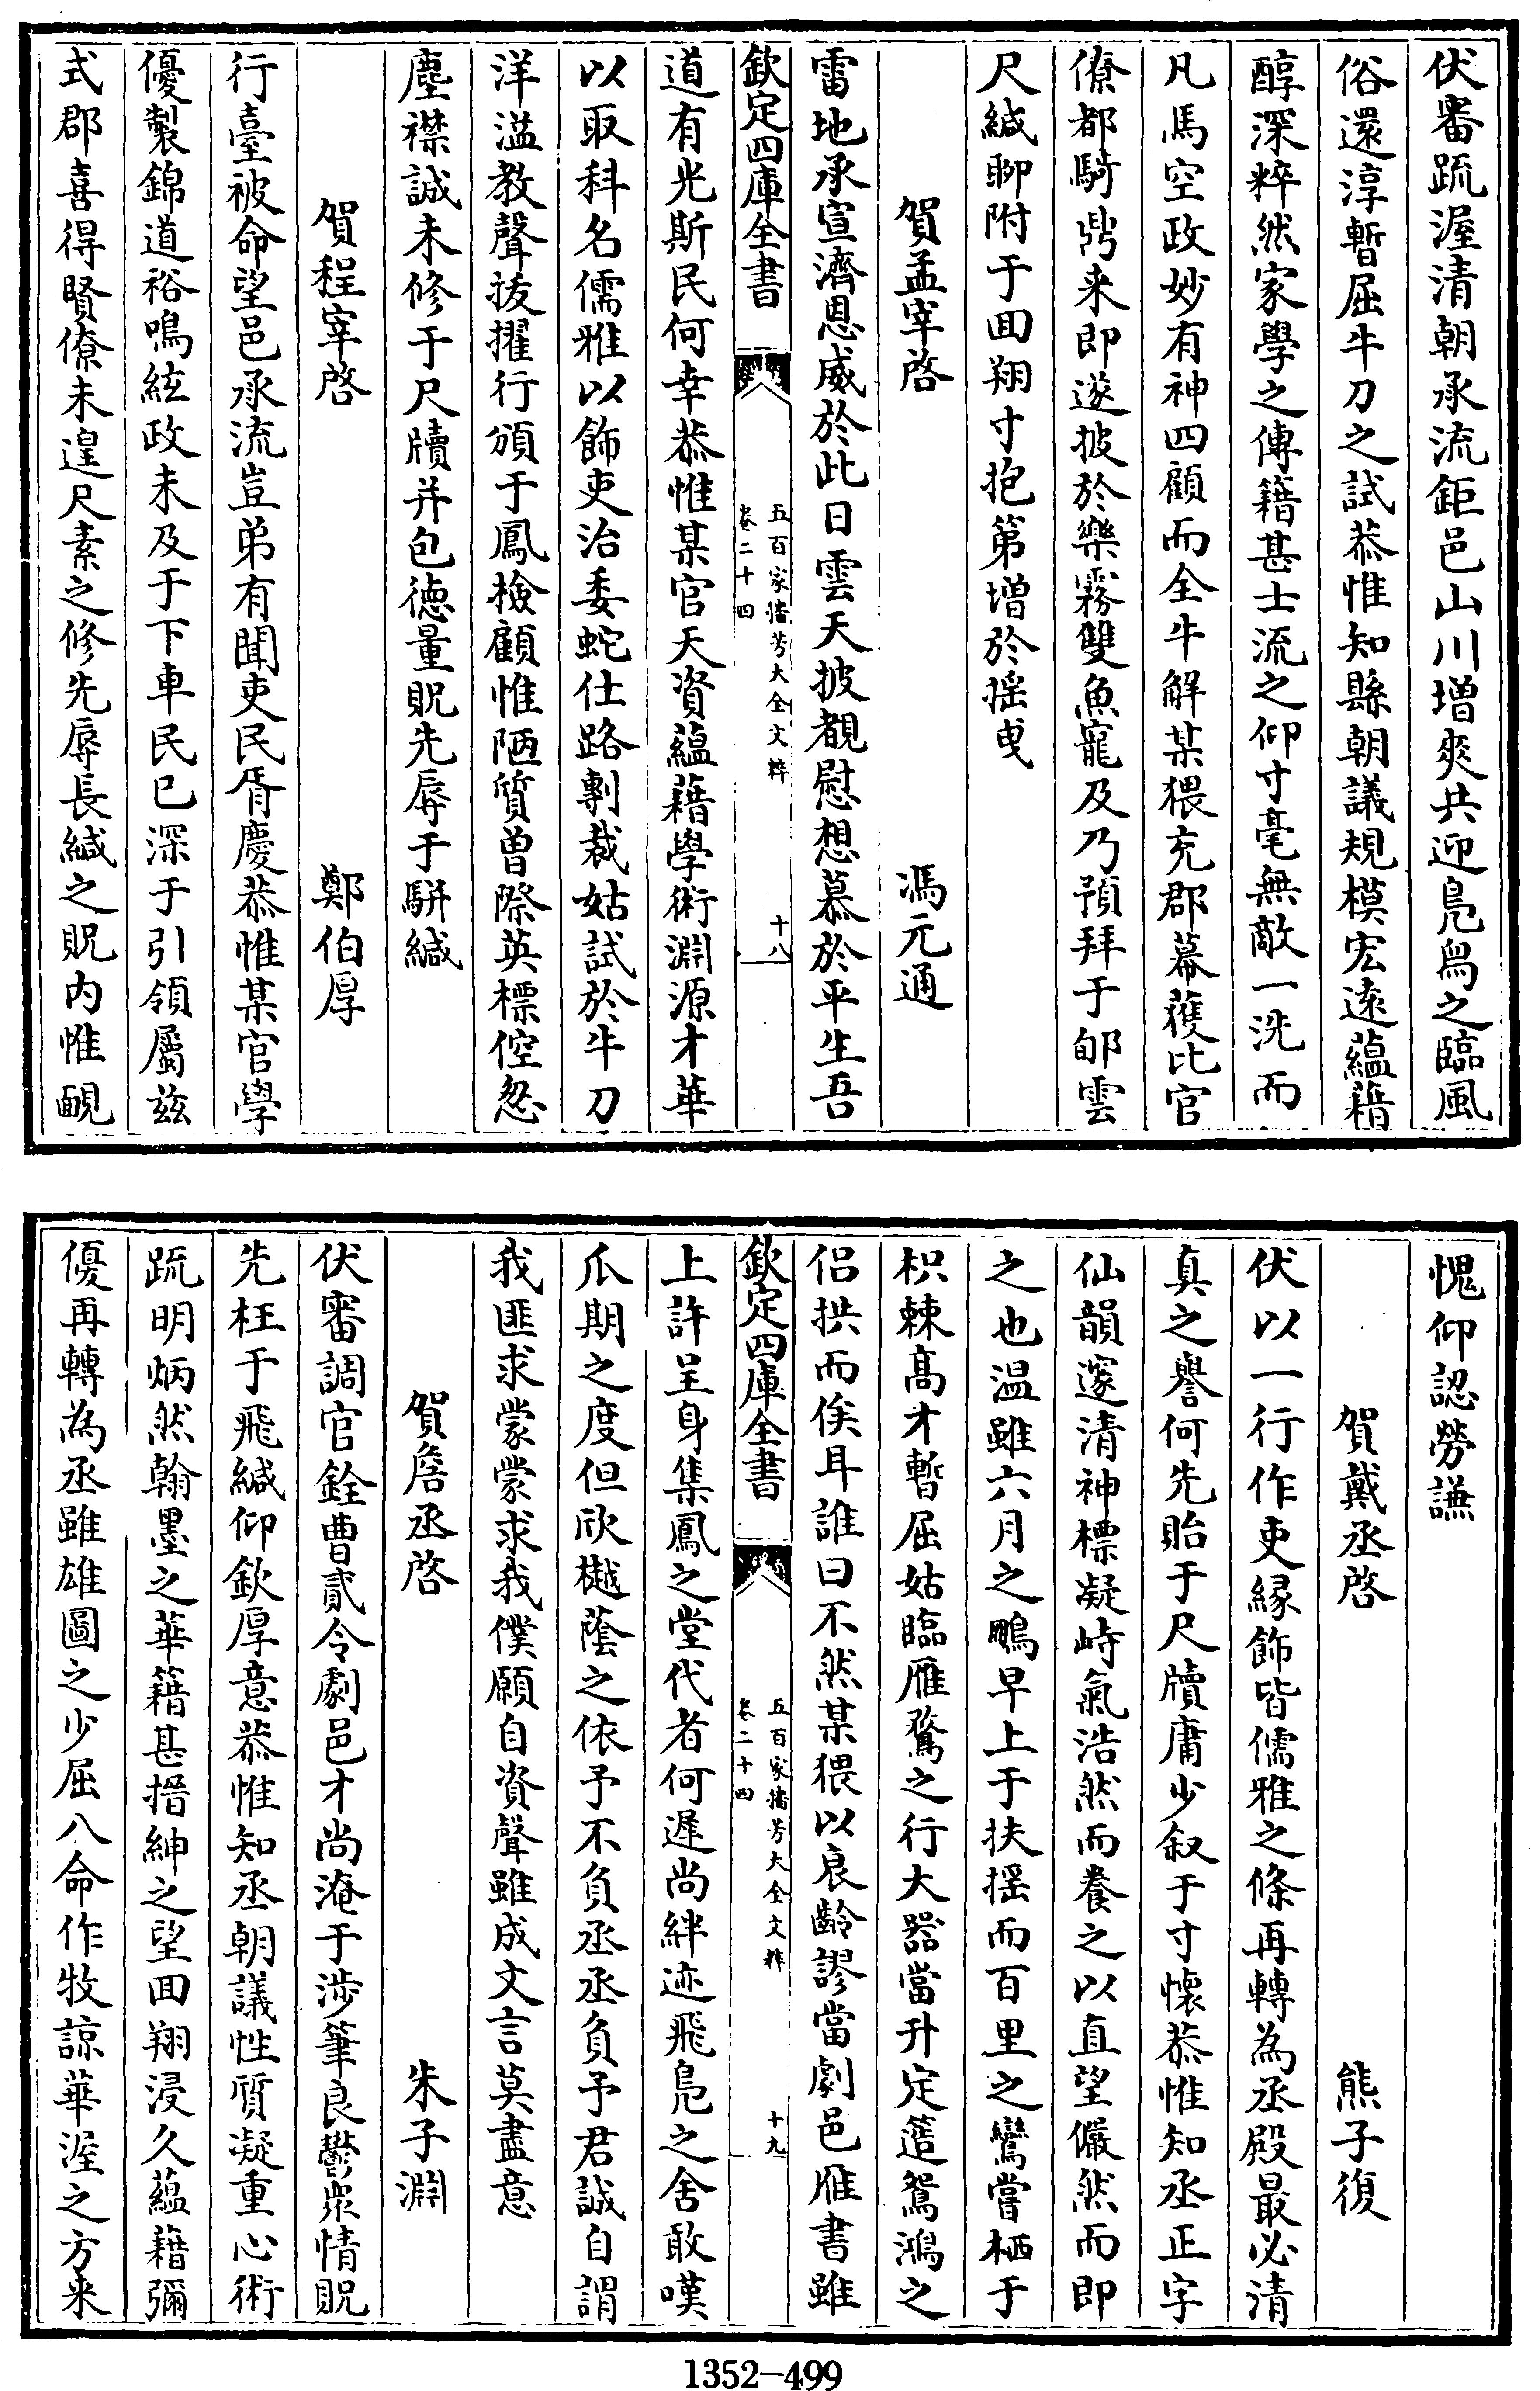 伏審疏渥清朝承流鉅邑山川增爽共迎鳬舄之臨風
俗還淳暫屈牛刀之試恭惟知縣朝議規模宏逺蘊藉
醇深粹然家學之傳籍甚士流之仰寸毫無敵一洗而
凡馬空政妙有神四顧而全牛解某猥充郡幕獲比官
僚都騎鼎来即遂披於樂霧雙魚寵及乃預拜于郇雲
尺緘聊附于囬翔寸抱第增於揺曳
賀孟宰啓　馮元通
雷地承宣濟恩威於此日雲天披覩慰想慕於平生吾
欽定四庫全書
五百家播芳大全文粹
卷二十四
十八
道有光斯民何幸恭惟某官天資蘊藉學術淵源才華
以取科名儒雅以飾吏治委蛇仕路剸裁姑試於牛刀
洋溢教聲拔擢行頒于鳳檢顧惟陋質曽際英標倥怱
塵襟誠未修于尺牘并包徳量貺先辱于駢緘
賀程宰啓　鄭伯厚
行臺被命望邑承流豈弟有聞吏民胥慶恭惟某官學
優製錦道裕鳴絃政未及于下車民已深于引領屬兹
式郡喜得賢僚未遑尺素之修先辱長緘之貺内惟靦
愧仰認勞謙
賀戴丞啓　熊子復
伏以一行作吏縁飾皆儒雅之條再轉為丞殿最必清
真之譽何先貽于尺牘庸少叙于寸懷恭惟知丞正字
仙韻邃清神標凝峙氣浩然而養之以直望儼然而即
之也温雖六月之鵬早上于扶揺而百里之鸞嘗栖于
枳棘髙才暫屈姑臨雁鶩之行大器當升定簉鴛鴻之
侣拱而俟耳誰曰不然某猥以衰齡謬當劇邑雁書雖
欽定四庫全書
五百家播芳大全文粹
卷二十四
十九
上許呈身集鳳之堂代者何遲尚絆迹飛鳬之舍敢嘆
爪期之度但欣樾蔭之依予不負丞丞負予君誠自謂
我匪求蒙蒙求我僕願自資聲雖成文言莫盡意
賀詹丞啓　朱子淵
伏審調官銓曹貳令劇邑才尚淹于涉筆良鬱衆情貺
先枉于飛緘仰欽厚意恭惟知丞朝議性質凝重心術
疏明炳然翰墨之華籍甚搢紳之望囬翔浸久蘊藉彌
優再轉為丞雖雄圖之少屈八命作牧諒華渥之方来
1352-499